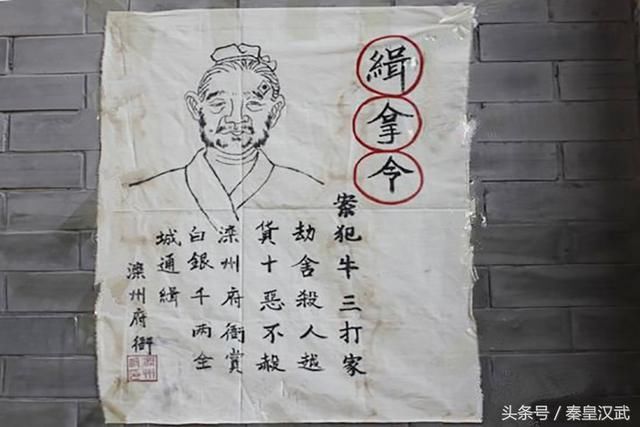 緝拿令
案犯牛三打家
劫舍殺人越
貨十惡不赦
滦州府衙賞
白銀千两全
城通緝
滦州府衙
头条号／秦皇汉武